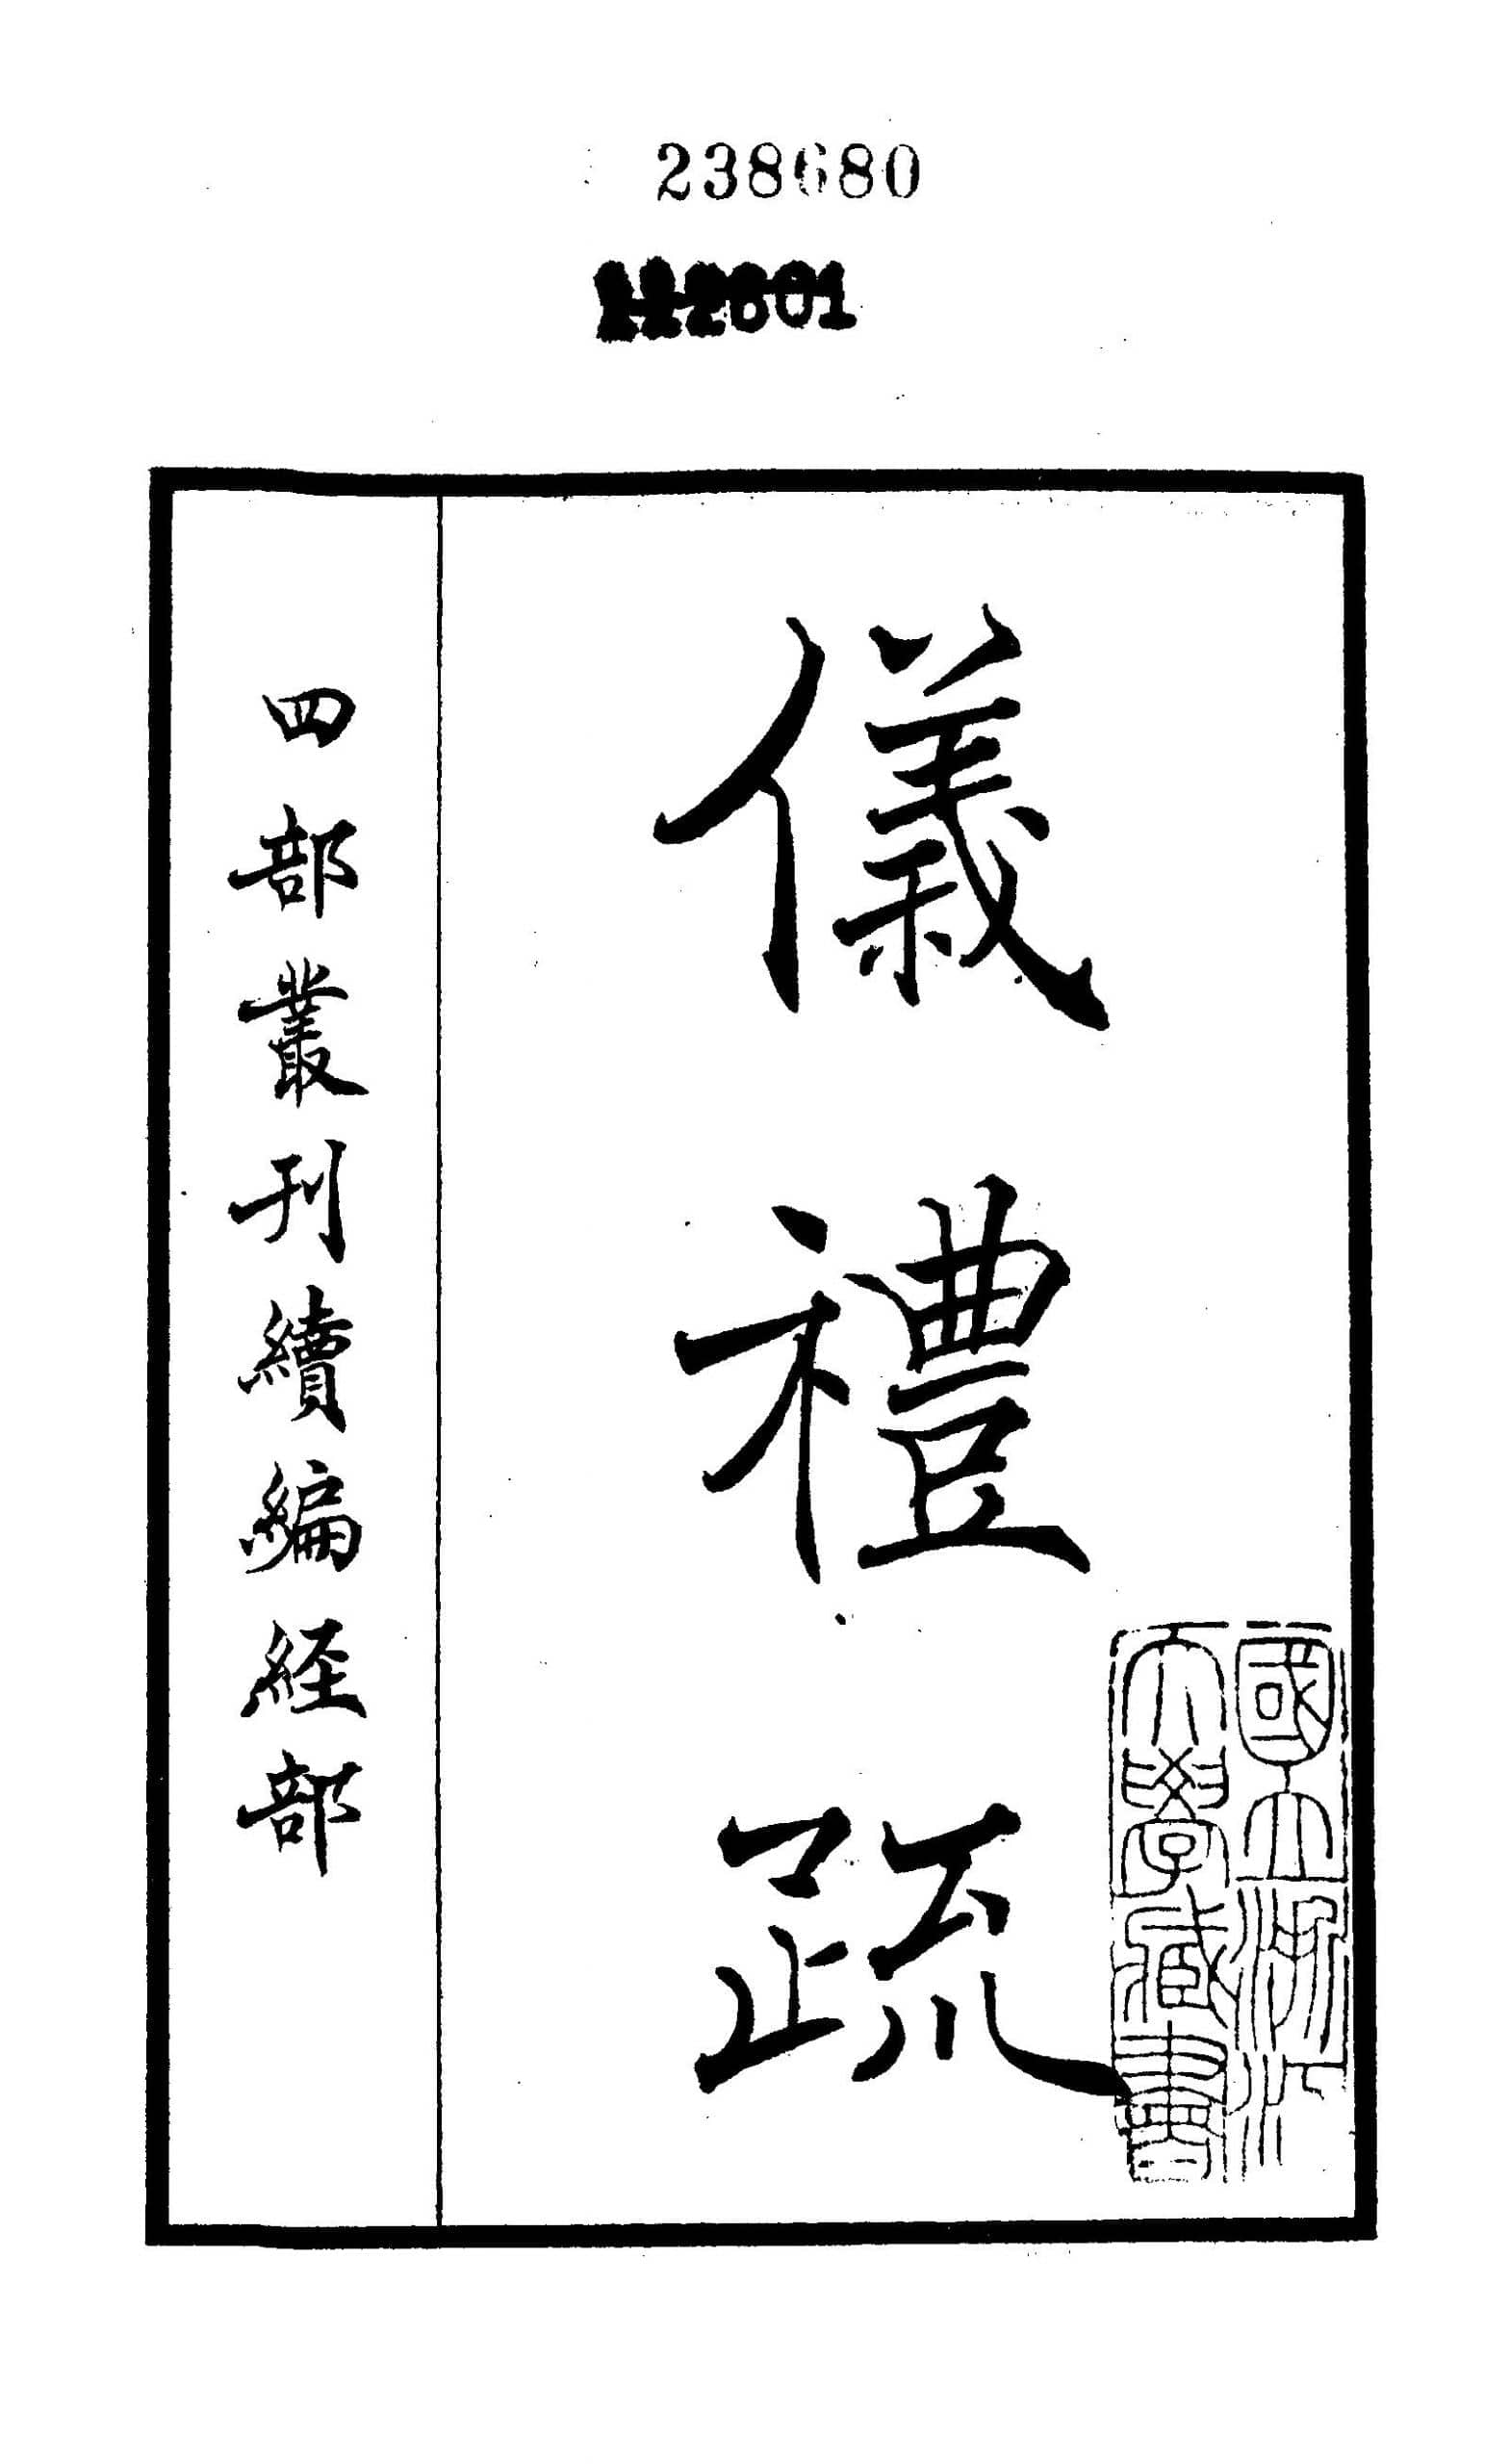 238680
儀禮疏
國立浙江
大學藏書
四部叢刊續編經部